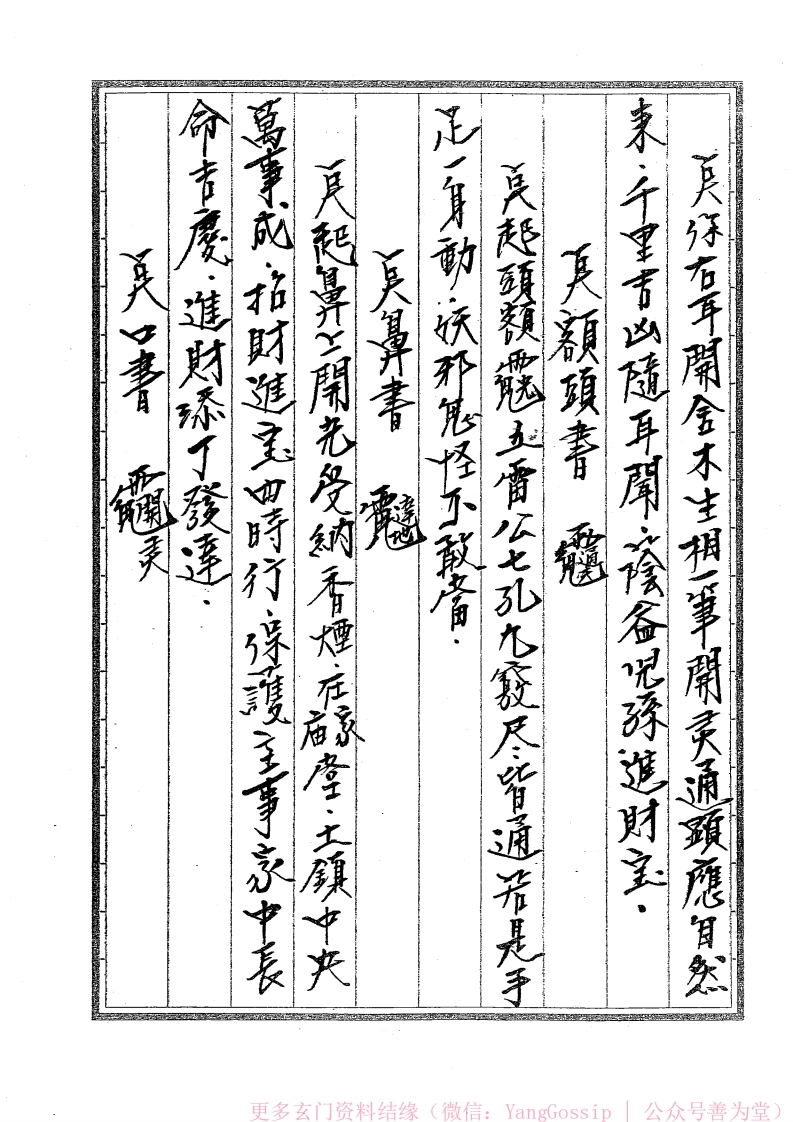 㸃你右耳開金木生相一筆開灵通顕應自然
来。千里吉凶隨耳聞。陰益児孫進財宝。
㸃額頭書
㸃起頭額 五雷公七孔九竅尽皆通若是手
足一身動。妖邪鬼怪不敢當。
㸃鼻書
㸃起鼻上開光受納香煙。在家庙堂。土鎮中央
萬事成。招財進宝四時行。保護主事家中長
命吉慶。進財添丁發達。
㸃口書
更多玄门资料结缘（微信：YangGossip | 公众号善为堂）